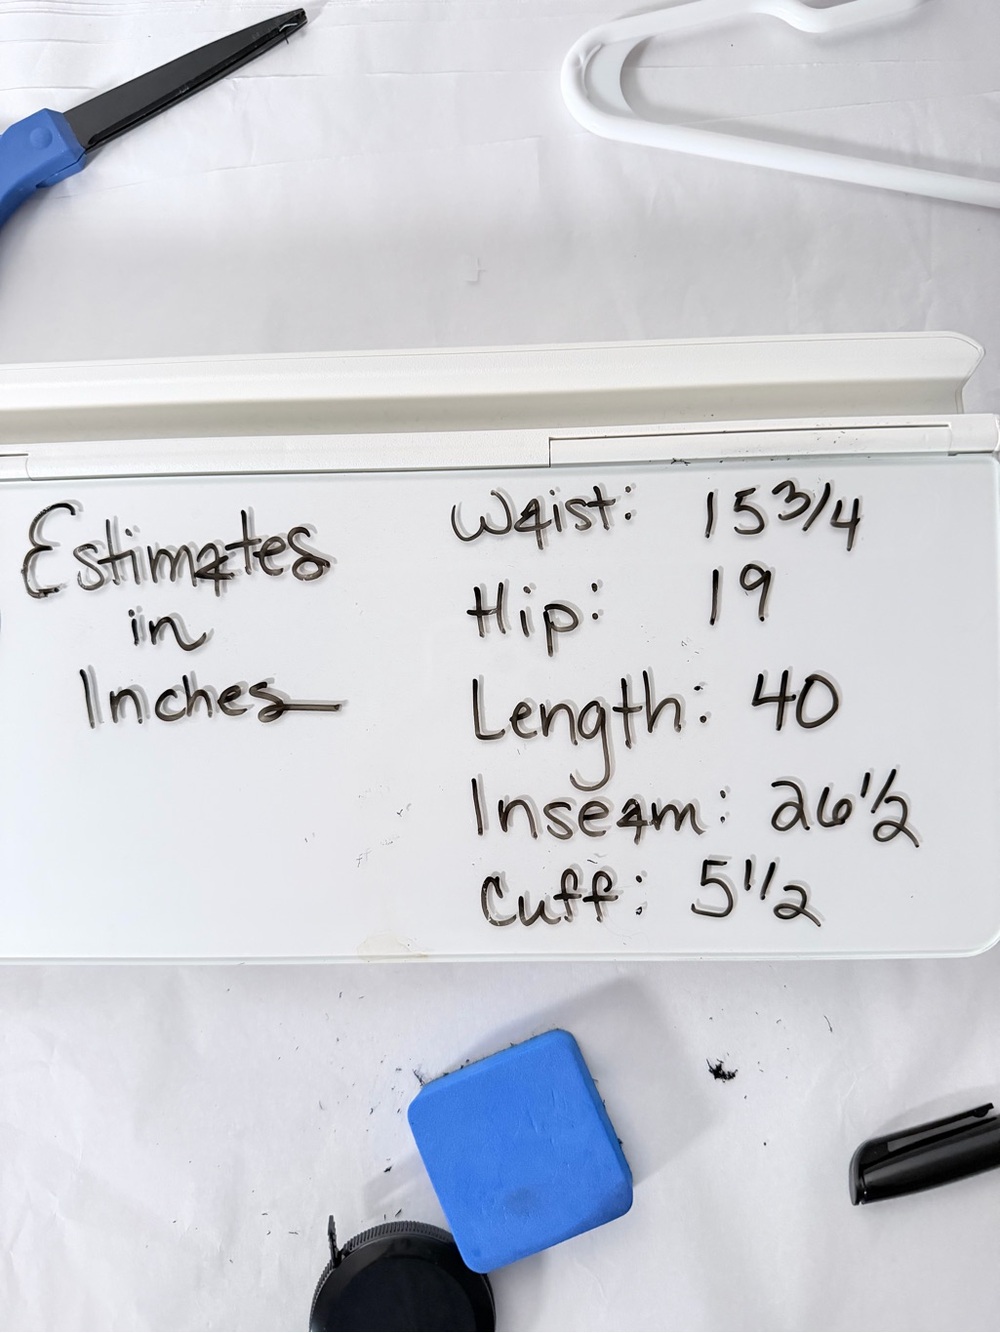 Estimates
in
Inches
Waist: 15 3/4
Hip: 19
Length: 40
Inseam: 26 1/2
Cuff: 5 1/2